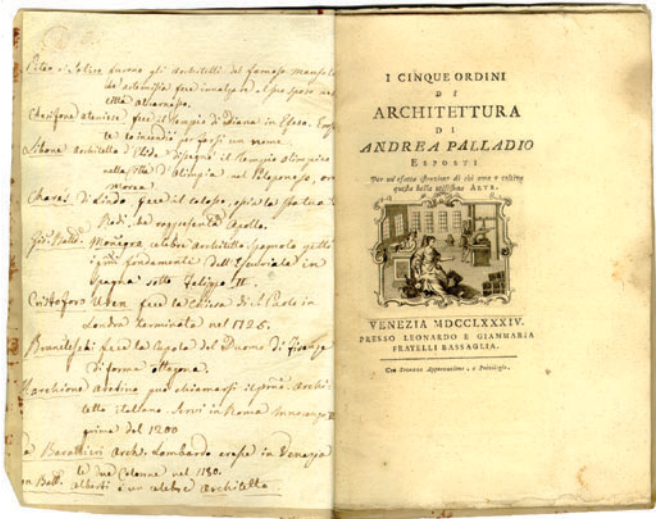 Piteo e Satiro furono gli Architetti del famoso Mausoleo
che Artemisia fece innalzare al suo sposo nella
città
Chersifone ateniese fece il Tempio di Diana in Efeso.
te lo incendiò per farsi un nome.
Libone Architetto d'Elide disegnò il Tempio olimpico
nella città d'Olimpia nel Peloponeso, ora
Morea
Chares di Lindo fece il colosso, o sia la statua
Rodi, che rappresentò Apollo.
Gio. Batt. Monegro, celebre Architetto Spagnolo gettò
i primi fondamenti dell'Escuriale in
Spagna sotto Felippo II.
Cristoforo Uren fece la Chiesa di S. Paolo in
Londra terminata nel 1725.
Bruneleschi fece la Cupola del Duomo di Firenze
di forma ottagona.
Marchione Aretino può chiamarsi il primo Archi-
tetto italiano. Servì in Roma Innocenzo III
prima del 1200
Barattieri Arch. Lombardo eresse in Venezia
le due Colonne nel 1180.
Batt. Alberti è un celebre Architetto
I CINQUE ORDINI
DI
ARCHITETTURA
DI
ANDREA PALLADIO
ESPOSTI
Per un' esatta istruzione di chi ama e coltiva
questa bella utilissima ARTE.
VENEZIA MDCCLXXXIV.
PRESSO LEONARDO E GIAMMARIA
FRATELLI BASSAGLIA.
Con Sovrana Approvazione, e Privilegio.